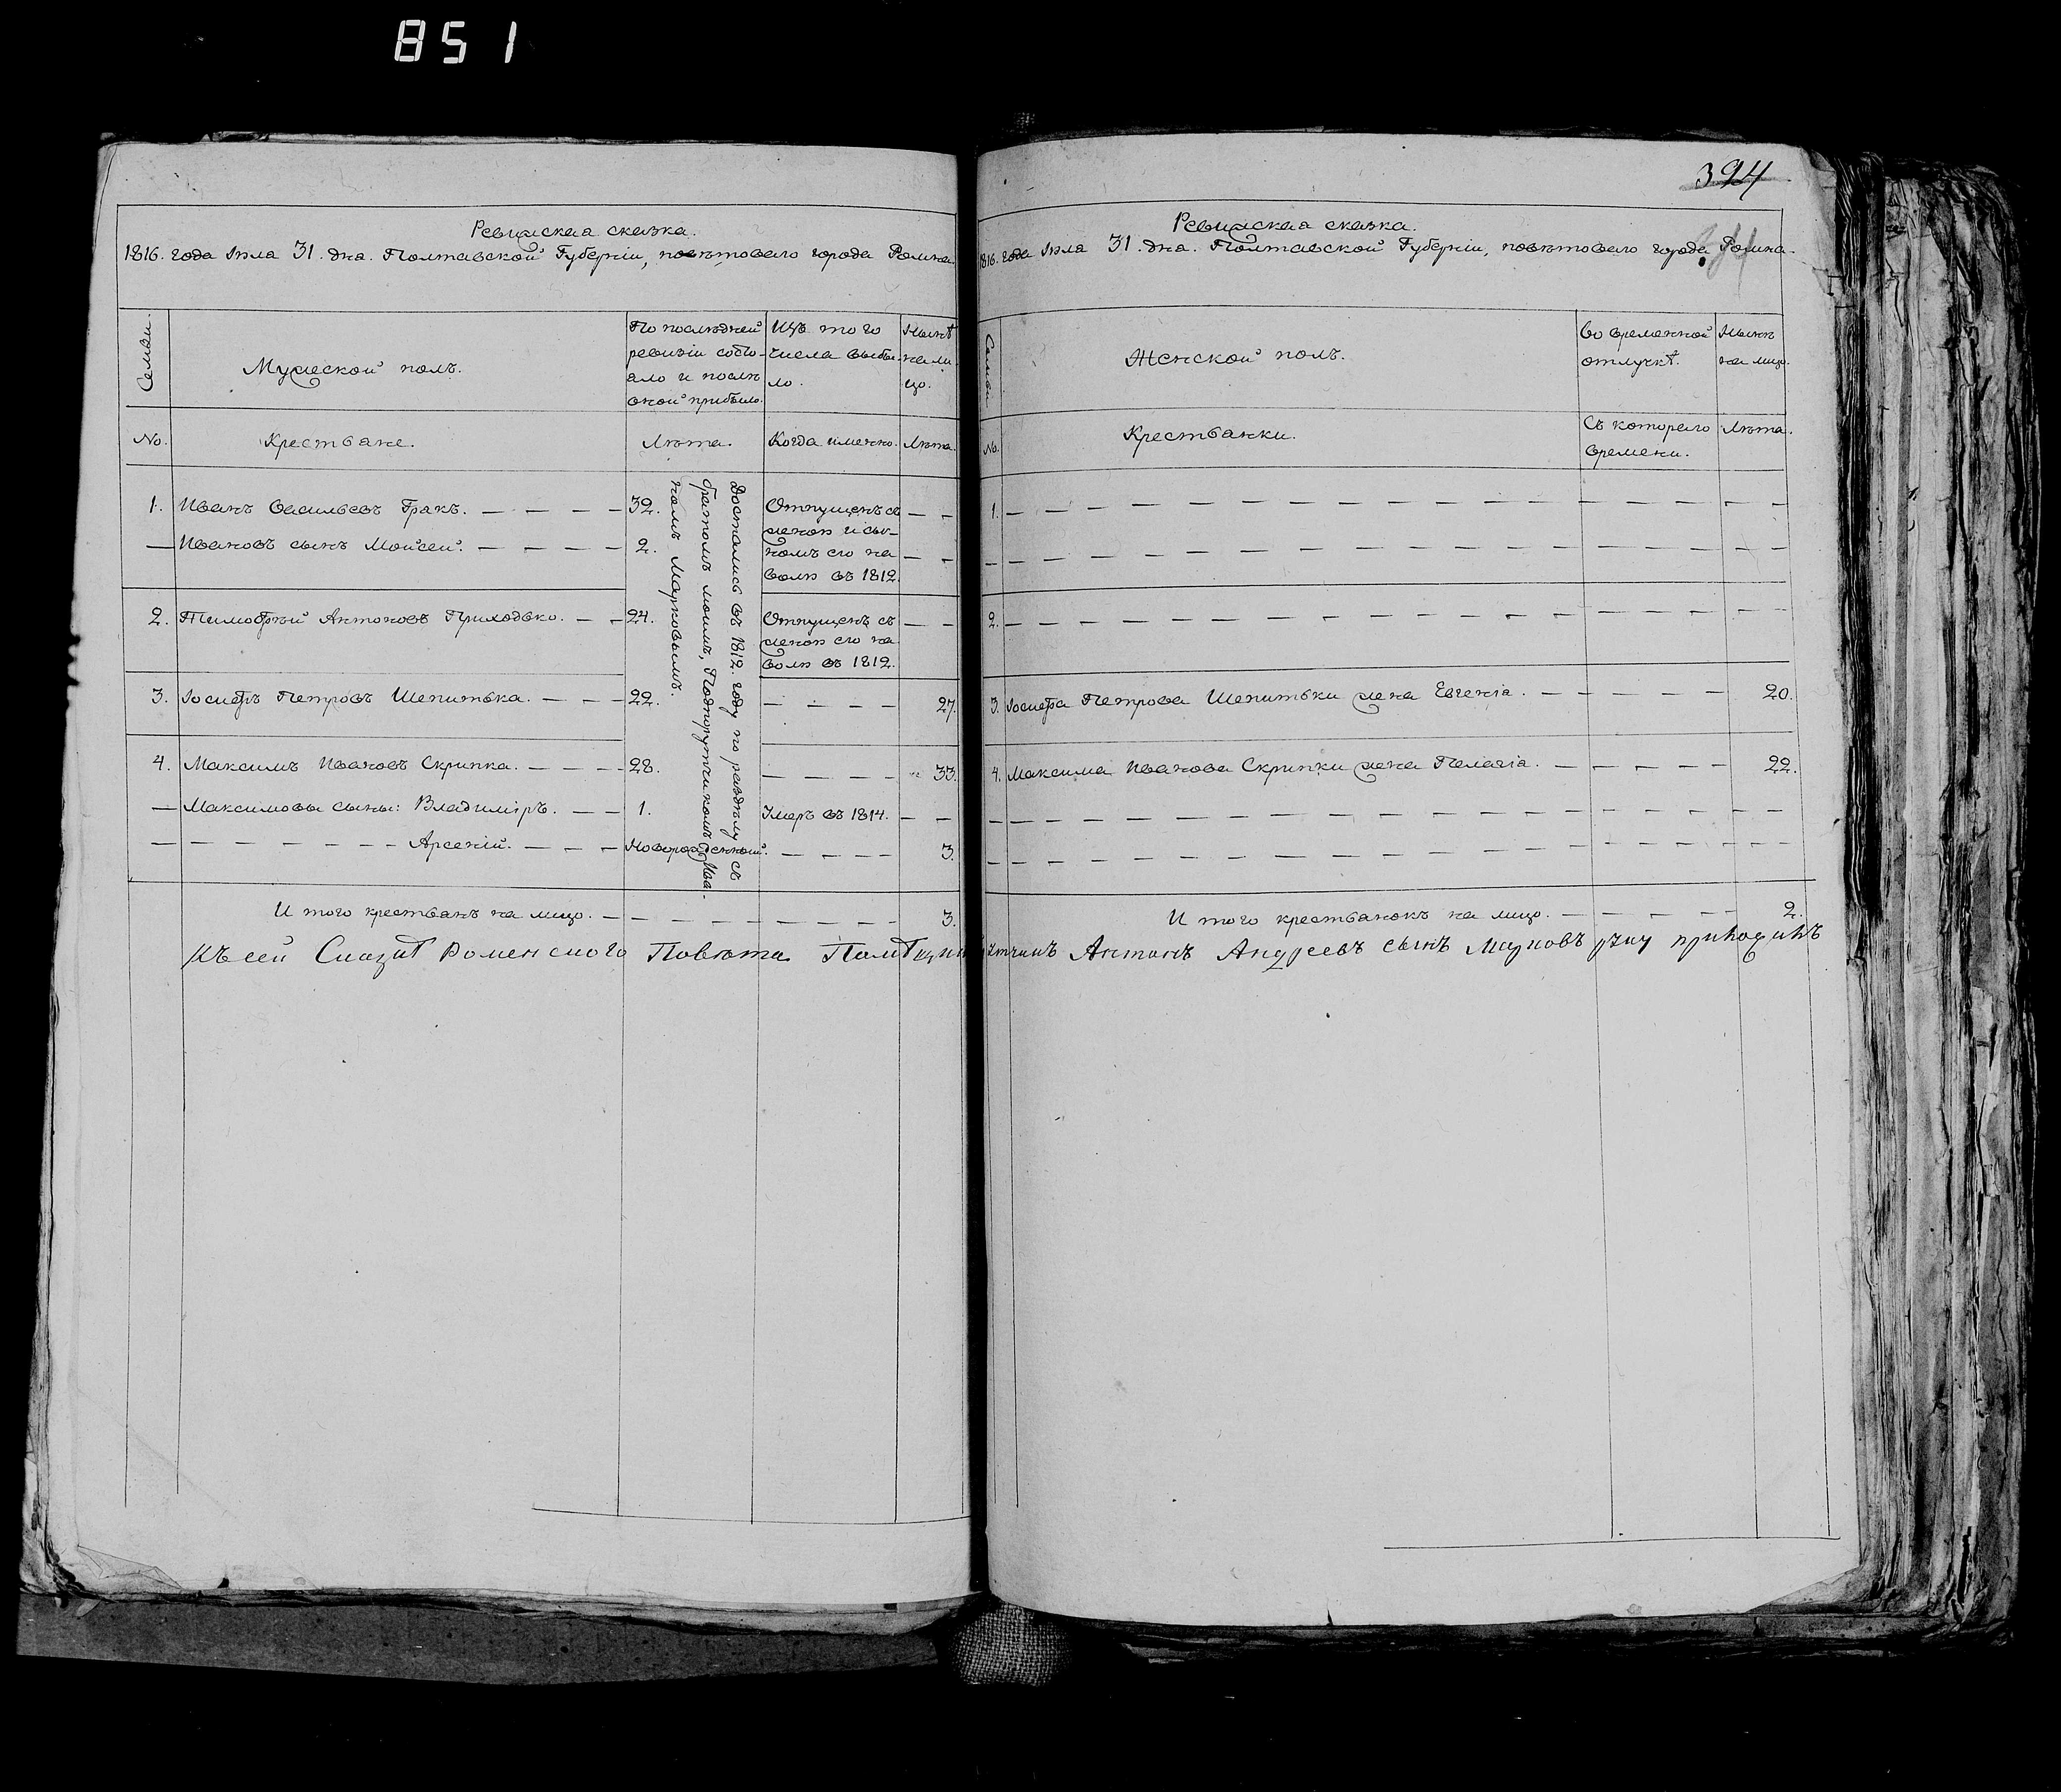 851
Ревижская сказка.
1816. года Іюла 31. дна. Полтавской Губерніи, повѣтоваго города Ромна.
Семьи.
Мужеской полъ.
По последней
ревизіи состо-
яло и послѣ
оной прибыло.
Изъ того
числа выбы-
ло.
Нынѣ
на ли
цо.
No.
Крестьяне.
Лѣта.
Когда именно.
Лѣта.
1. Иванъ Васильевъ Гракъ. — — — — 32.
Отпущенъ съ
женою и сы-
номъ его на
волю въ 1812.
— —
— Ивановъ сынъ Мойсей. — — — — 2. — —
2. Тимофѣй Антоновъ Приходько. — — 24.
Отпущенъ съ
женою его на
волю въ 1812.
— —
3. Іосифъ Петровъ Шепитька. — — — 22. — — — — 27.
4. Максимъ Ивановъ Скрипка. — — — 28. — — — — 33.
— Максимовы сыны: Владиміръ. — — 1. Умеръ въ 1814. — —
— — — — — — — Арсеній. — — — Новорожденный. — — — — 3.
Достались въ 1812. году по раздѣлу съ
братомъ моимъ, Подпорутчикомъ Ива-
номъ Марковымъ.
И того крестьянъ на лицо. — — — — — — — — 3.
394
Ревижская сказка.
1816. года Іюла 31. дна. Полтавской Губерніи, повѣтоваго города Ромна.
Семьи.
Женской полъ.
Во временной
отлучкѣ.
Нынѣ
на лицо.
No.
Крестьянки.
Съ котораго
времени.
Лѣта.
1. — — — — — — — — — — — —
— — — — — — — — — — — —
2. — — — — — — — — — — — —
3. Іосифа Петрова Шепитьки жена Евгенія. — — — — — — 20.
4. Максима Иванова Скрипки жена Пелагія. — — — — — — 22.
— — — — — — — — — — — —
— — — — — — — — — — — —
И того крестьянокъ на лицо. — — — — 2.
Къ сей Сказкѣ Роменского Повѣта Антонъ Андреевъ сынъ Марковъ руку приложилъ